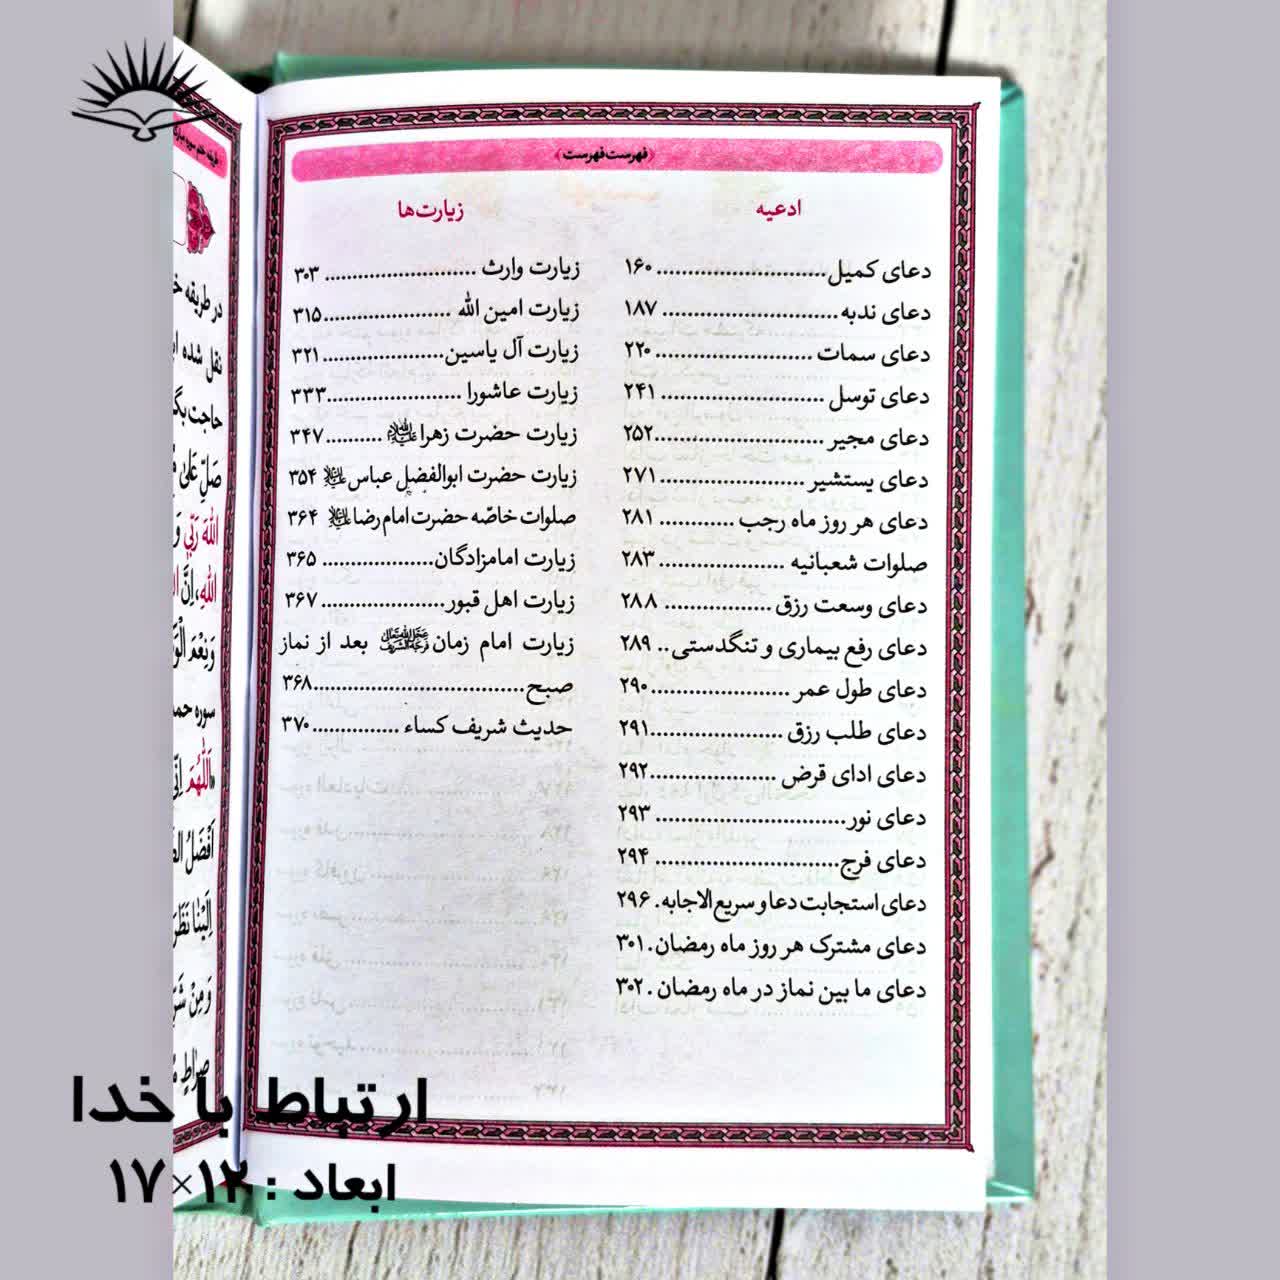 فهرست فهرست
ادعیه
دعای کمیل.......................... ۱۶۰
دعای ندبه.......................... ۱۸۷
دعای سمات ....................... ۲۲۰
دعای توسل ........................ ۲۴۱
دعای مجیر .........................۲۵۲
دعای یستشیر ..................... ۲۷۱
دعای هر روز ماه رجب ........... ۲۸۱
صلوات شعبانیه ................... ۲۸۳
دعای وسعت رزق ................ ۲۸۸
دعای رفع بیماری و تنگدستی.. ۲۸۹
دعای طول عمر .....................۲۹۰
دعای طلب رزق ....................۲۹۱
دعای ادای قرض ...................۲۹۲
دعای نور............................. ۲۹۳
دعای فرج............................ ۲۹۴
دعای استجابت دعا و سریع الاجابه. ۲۹۶
دعای مشترک هر روز ماه رمضان. ۳۰۱
دعای ما بین نماز در ماه رمضان . ۳۰۲
زیارت‌ها
زیارت وارث ....................... ۳۰۳
زیارت امین الله ................... ۳۱۵
زیارت آل یاسین................... ۳۲۱
زیارت عاشورا .....................۳۳۳
زیارت حضرت زهرا علیها السلام ..........۳۴۷
زیارت حضرت ابوالفضل عباس علیه السلام ۳۵۴
صلوات خاصّه حضرت امام رضا علیه السلام ۳۶۴
زیارت امامزادگان.................. ۳۶۵
زیارت اهل قبور................... ۳۶۷
زیارت امام زمان عجل الله تعالی فرجه الشریف بعد از نماز
صبح................................۳۶۸
حدیث شریف کساء ............... ۳۷۰
در طریقه
نقل شده
صَلِّ عَلیٰ
اللهَ رَبّی وَ
سوره حمد
اَللّٰهُمَّ
وَ مِنْ
ارتباط با خدا
ابعاد : ۱۲×۱۷